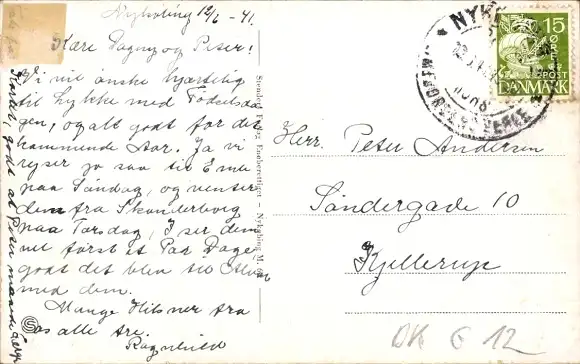 Nykøbing 12/6 - 41.
Kære Dagny og Peter!
Vi vil ønske hjærtelig
til Lykke med Fødselsda-
gen, og alt godt for det
kommende Aar. Ja vi
rejser jo saa til
paa Søndag, og venter
dem fra Skanderborg
paa Torsdag, I ser dem
vel først et Par Dage
godt det blev til Alvor
med dem.
Mange Hilsner fra
os alle tre.
Ragnhild
godt at Peter maatte
Stenders Forlag Eneberettiget - Nykøbing M.
NYK
15
ØRE
POST
DANMARK
Herr. Peter Andersen
Søndergade 10
Kjellerup
DK G 12